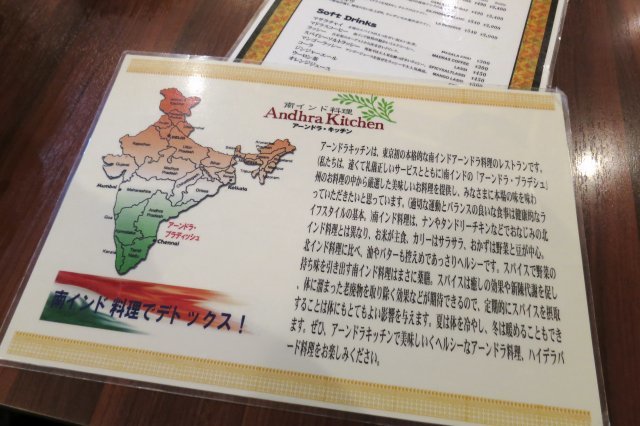 Soft Drinks
マサラチャイ
マドラスコーヒー
ラッシー
スパイシーソルトラッシー
マンゴーラッシー
コーラ
ジンジャーエール
ウーロン茶
オレンジジュース
MASALA CHAI
MADRAS COFFEE
LASSI
SPICY SALT LASSI
MANGO LASSI
南インド料理
Andhra Kitchen
アーンドラ・キッチン
DELHI
Mumbai
Kolkata
Chennai
アーンドラ・
プラディッシュ
南インド料理でデトックス！
アーンドラキッチンは、東京初の本格的な南インドアーンドラ料理のレストランです。
私たちは、速くて礼儀正しいサービスとともに南インドの「アーンドラ・プラデシュ」
州のお料理の中から厳選した美味しいお料理を提供し、みなさまに本場の味を味わ
っていただきたいと思っています。適切な運動とバランスの良い食事は健康的なラ
イフスタイルの基本。南インド料理は、ナンやタンドリーチキンなどでおなじみの北
インド料理とは異なり、お米が主食、カリーはサラサラ、おかずは野菜と豆が中心。
北インド料理に比べ、油やバターも控えめであっさりヘルシーです。スパイスで野菜の
持ち味を引き出す南インド料理はまさに薬膳。スパイスは癒しの効果や新陳代謝を促
し、体に溜まった老廃物を取り除く効果などが期待できるので、定期的にスパイスを摂取
することは体にもとてもよい影響を与えます。夏は体を冷やし、冬は暖めることもでき
ます。ぜひ、アーンドラキッチンで美味しいくヘルシーなアーンドラ料理、ハイデラバ
ード料理をお楽しみください。